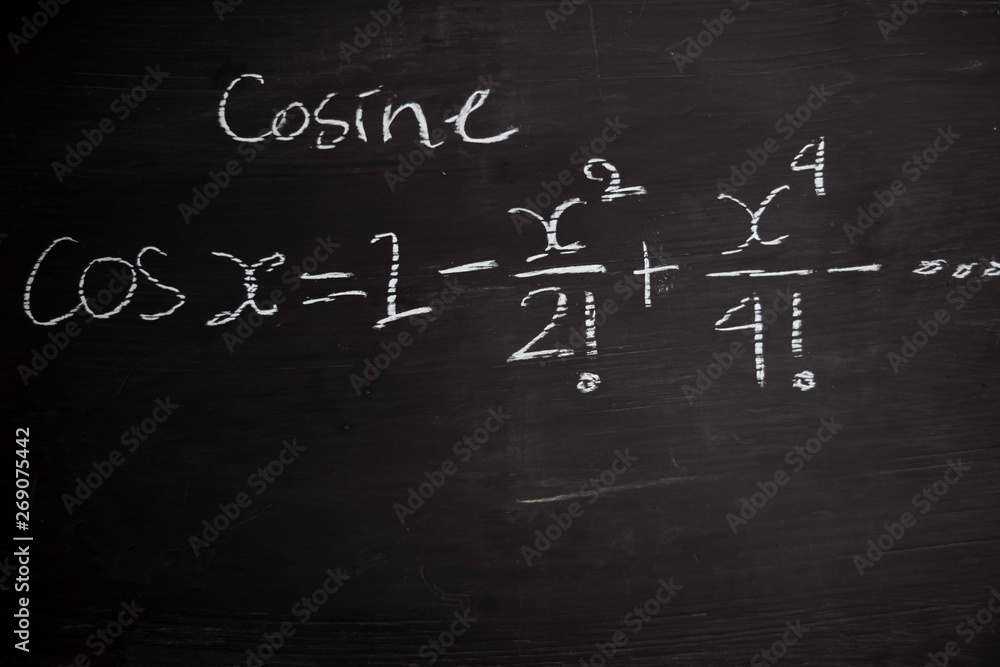 Cosine
Cos x = 1 - x²/2! + x⁴/4! - ...
Adobe Stock | #269075442